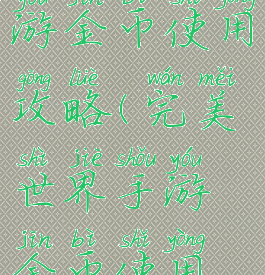 yóu jīn bì shǐ yòng
游金币使用
gōng lüè wán měi
攻略(完美
shì jiè shǒu yóu
世界手游
jīn bì shǐ yòng
金币使用